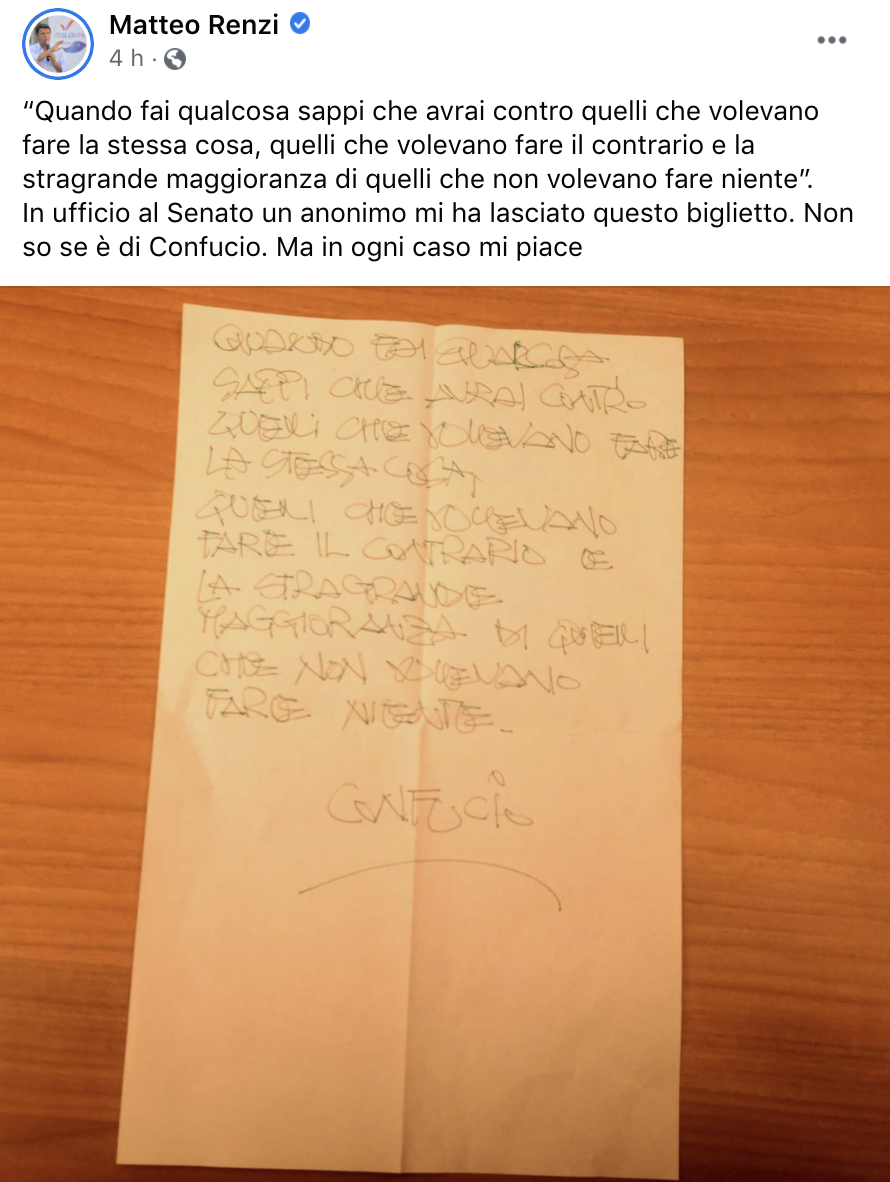 Matteo Renzi
4 h ·
“Quando fai qualcosa sappi che avrai contro quelli che volevano
fare la stessa cosa, quelli che volevano fare il contrario e la
stragrande maggioranza di quelli che non volevano fare niente”.
In ufficio al Senato un anonimo mi ha lasciato questo biglietto. Non
so se è di Confucio. Ma in ogni caso mi piace
QUANDO FAI QUALCOSA
SAPPI CHE AVRAI CONTRO
QUELLI CHE VOLEVANO FARE
LA STESSA COSA,
QUELLI CHE VOLEVANO
FARE IL CONTRARIO E
LA STRAGRANDE
MAGGIORANZA DI QUELLI
CHE NON VOLEVANO
FARE NIENTE.
CONFUCIO